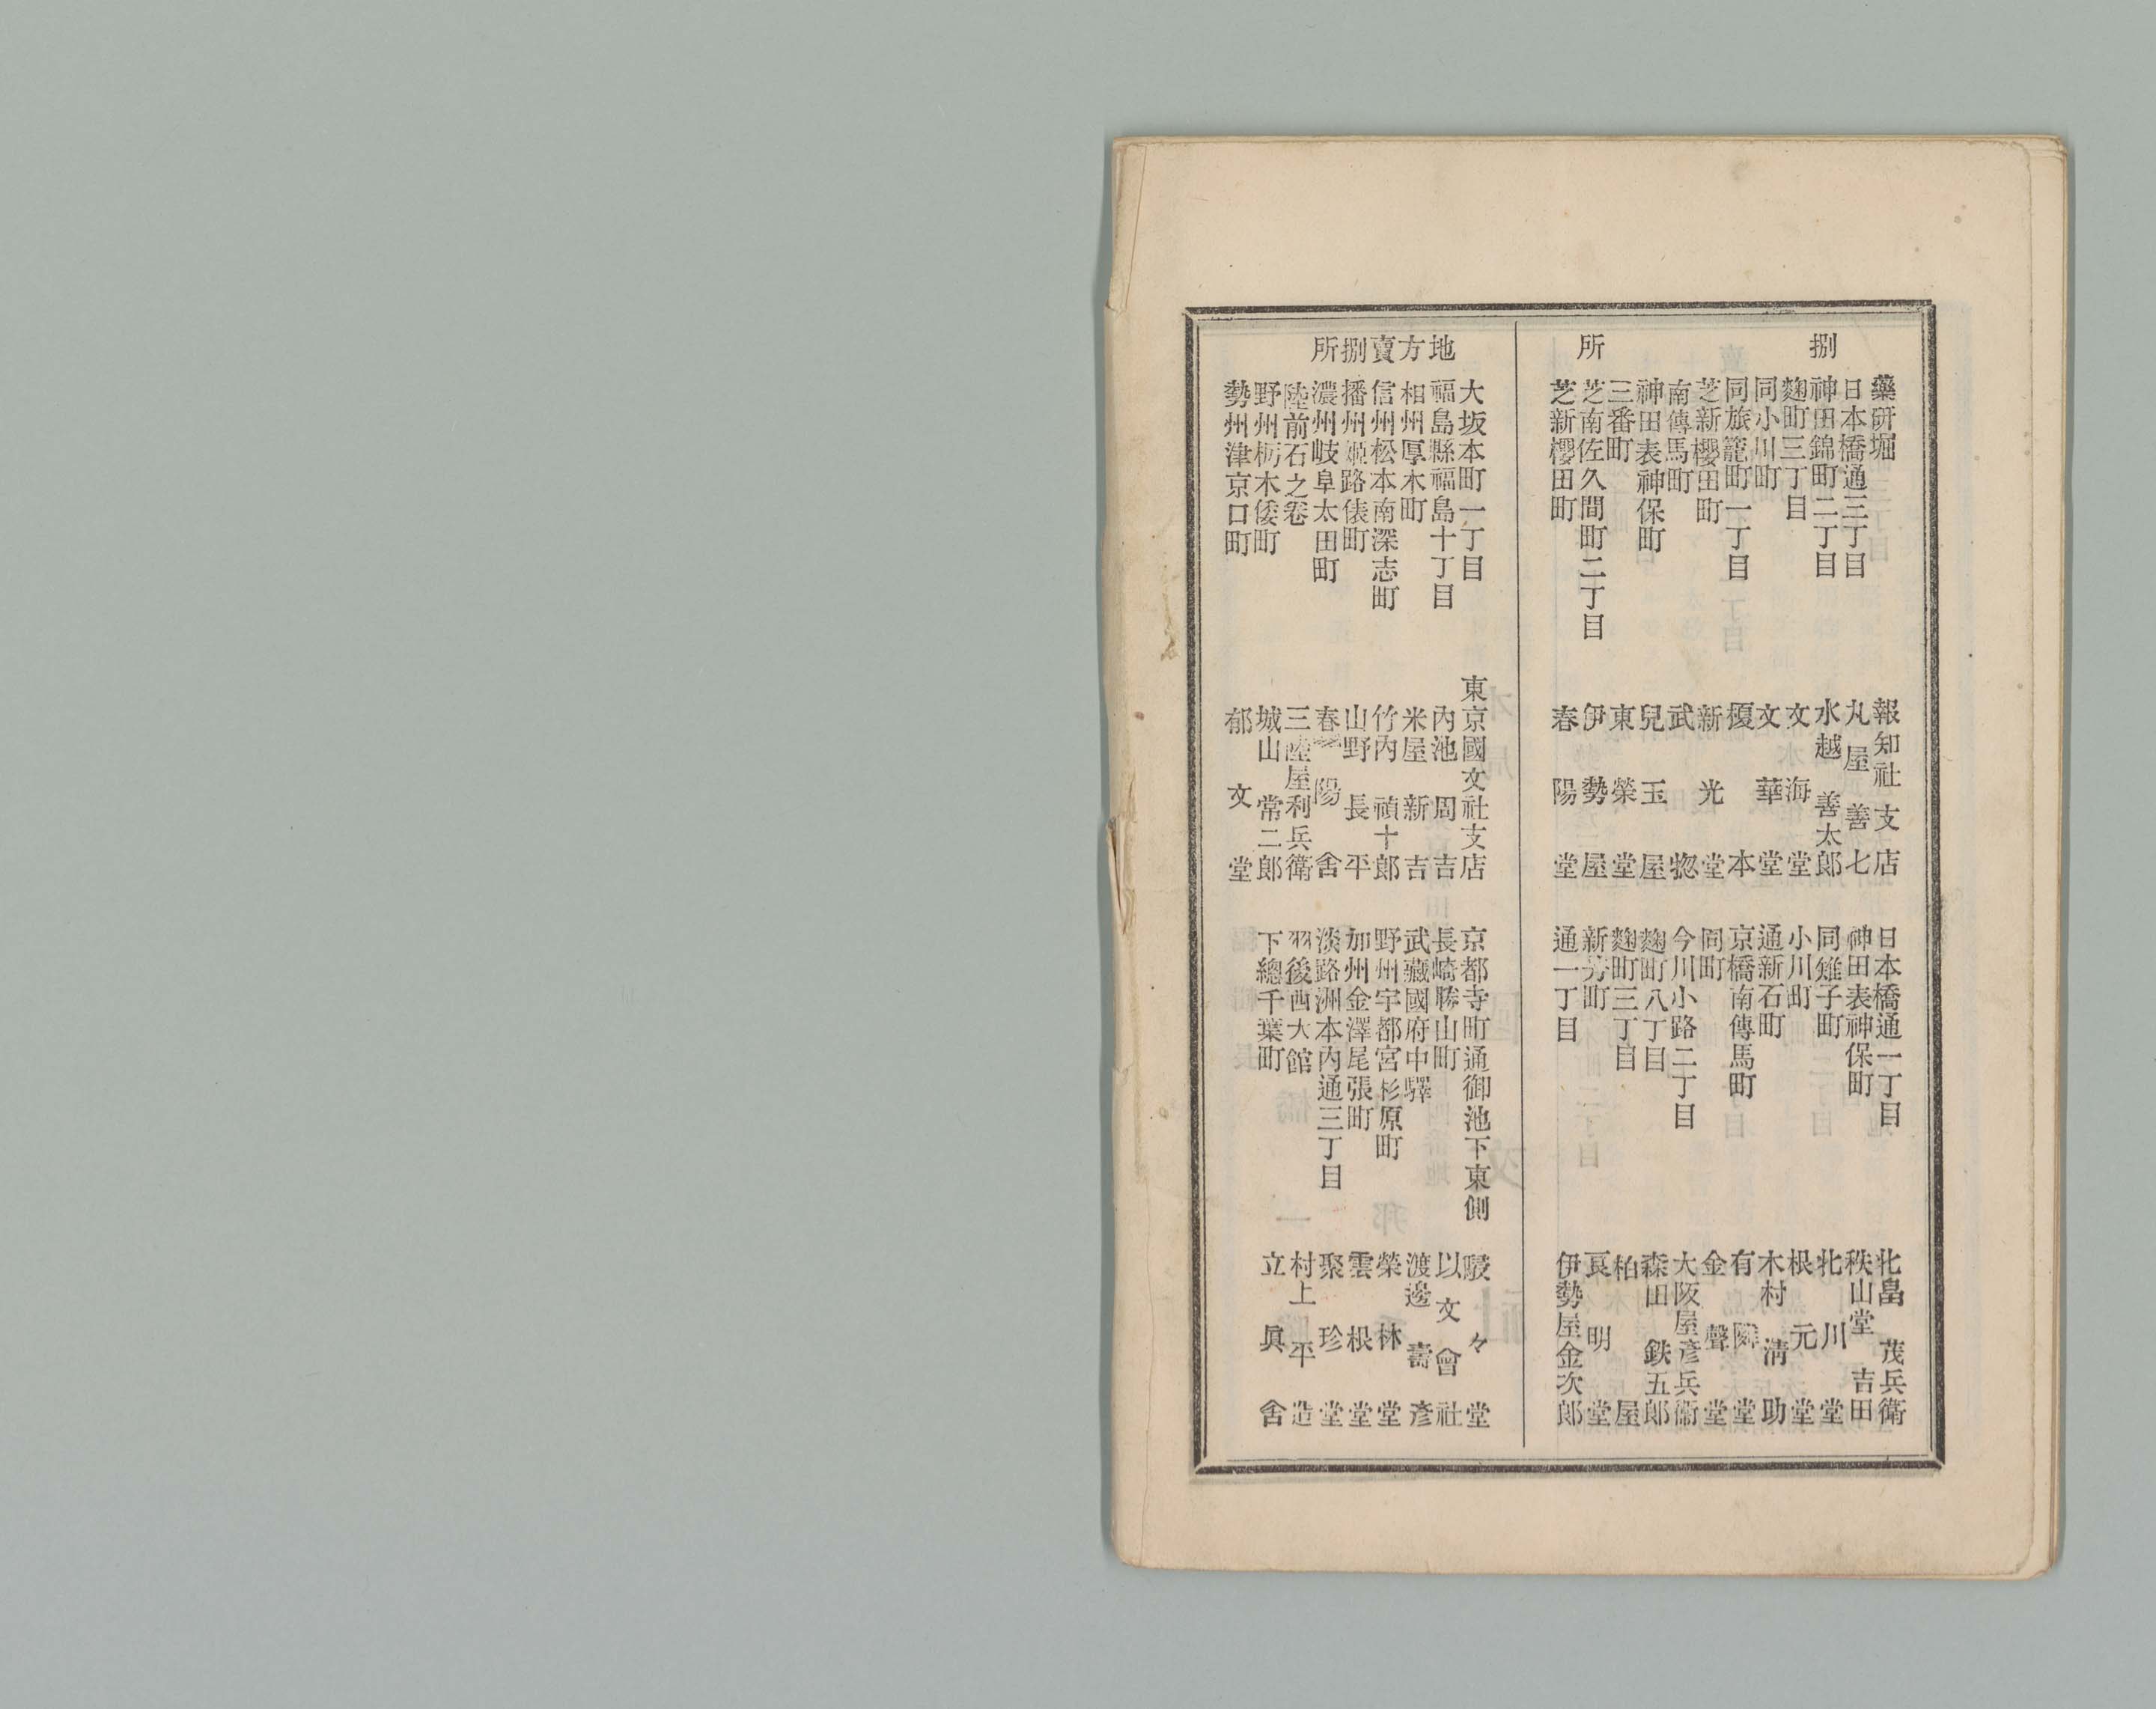 捌　所
藥硏堀　報知社支店　日本橋通一丁目　北畠茂兵衛
日本橋通三丁目　丸屋善七　神田表神保町　秩山堂吉田
神田錦町二丁目　水越善太郎　同雉子町　北川堂
麴町三丁目　文海堂　小川町　根元堂
同小川町　文華堂　通新石町　木村淸助
同旅籠町一丁目　榎本　京橋南傳馬町　有隣堂
芝新櫻田町　新光堂　同町　金聲堂
南傳馬町　武惚　今川小路二丁目　大阪屋彥兵衞
神田表神保町　兒玉屋　麴町八丁目　森田鉄五郎
三番町　東榮堂　麴町三丁目　柏屋
芝南佐久間町二丁目　伊勢屋　新芳町　良明堂
芝新櫻田町　春陽堂　通一丁目　伊勢屋金次郎
地方賣捌所
大坂本町一丁目　東京國文社支店　京都寺町通御池下東側　駸々堂
福島縣福島十丁目　內池周吉　長崎勝山町　以文會社
相州厚木町　米屋新吉　武藏國府中驛　渡邊壽彥
信州松本南深志町　竹內禎十郎　野州宇都宮杉原町　榮林堂
播州姬路俵町　山野長平　加州金澤尾張町　雲根堂
濃州岐阜太田町　春陽舍　淡路洲本內通三丁目　聚珍堂
陸前石之卷　三陸屋利兵衛　羽後西大館　村上平造
野州栃木倭町　城山常二郎　下總千葉町　立眞舍
勢州津京口町　郁文堂